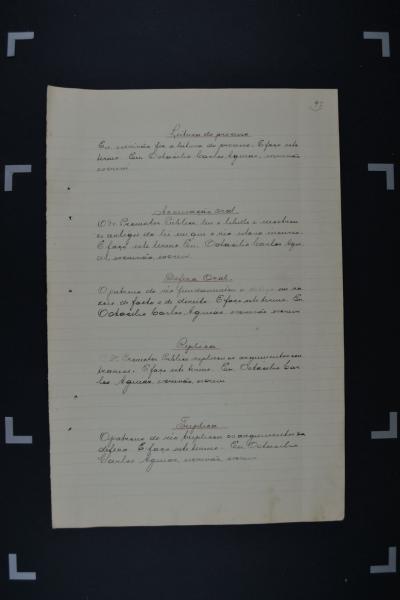 Leitura do processo
Eu, escrivão fiz a leitura do processo. E faço este
termo. Eu, Octacilio Carlos Aguiar, escrivão
escrevi.
Accusação oral
O Dr. Promotor Publico leu o libello e mostrou
os artigos da lei em que o réo estava incurso.
E faço este termo. Eu Octacilio Carlos Agui-
ar, escrivão, escrevi.
Defesa Oral.
O patrono do réo fundamentou a defesa em ra-
zões de facto e de direito. E faço este termo. Eu
Octacilio Carlos Aguiar, escrivão escrevi
Replica
O Dr. Promotor Publico replicou os argumentos con
trarios. E faço este termo. Eu Octacilio Car-
los Aguiar, escrivão, escrevi
Treplica
O patrono do réo treplicou os argumentos da
defesa. E faço este termo. Eu Octacilio
Carlos Aguiar, escrivão escrevi